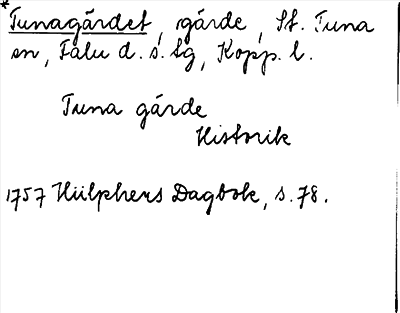 *Tunagärdet, gärde, St. Tuna
sn, Falu d.s. tg, Kopp. l.
Tuna gärde
Historik
1757 Hülphers Dagbok, s. 78.